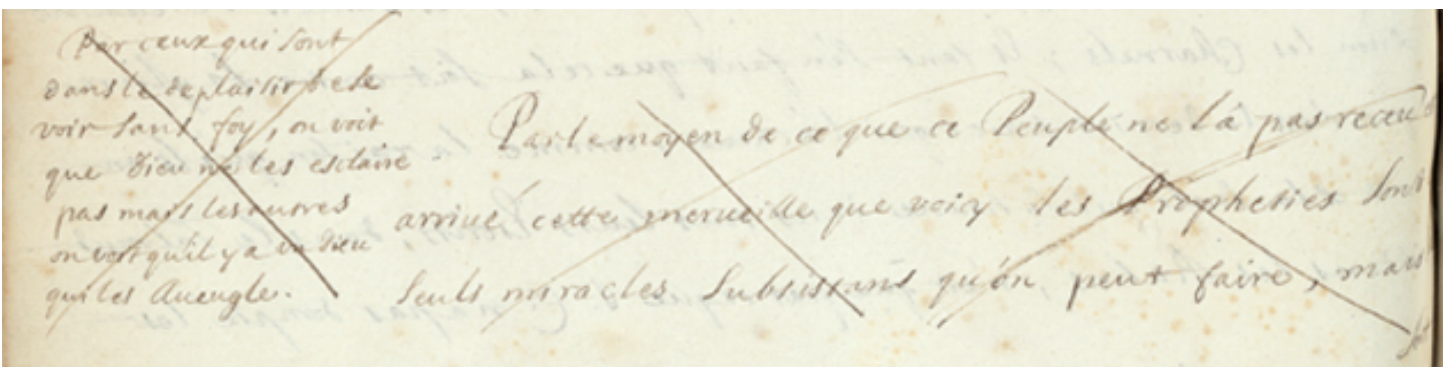 Par ceux qui sont
dans le deplaisir de se
voir sans foy, on voit
que Dieu ne les esclaire
pas mais les autres
on voit qu'il y a un Dieu
qui les Aveugle.
Par le moyen de ce que ce Peuple ne l'a pas receu
arrivé cette merveille que voicy les Propheties sont
seuls miracles subsistans qu'on peut faire, mais